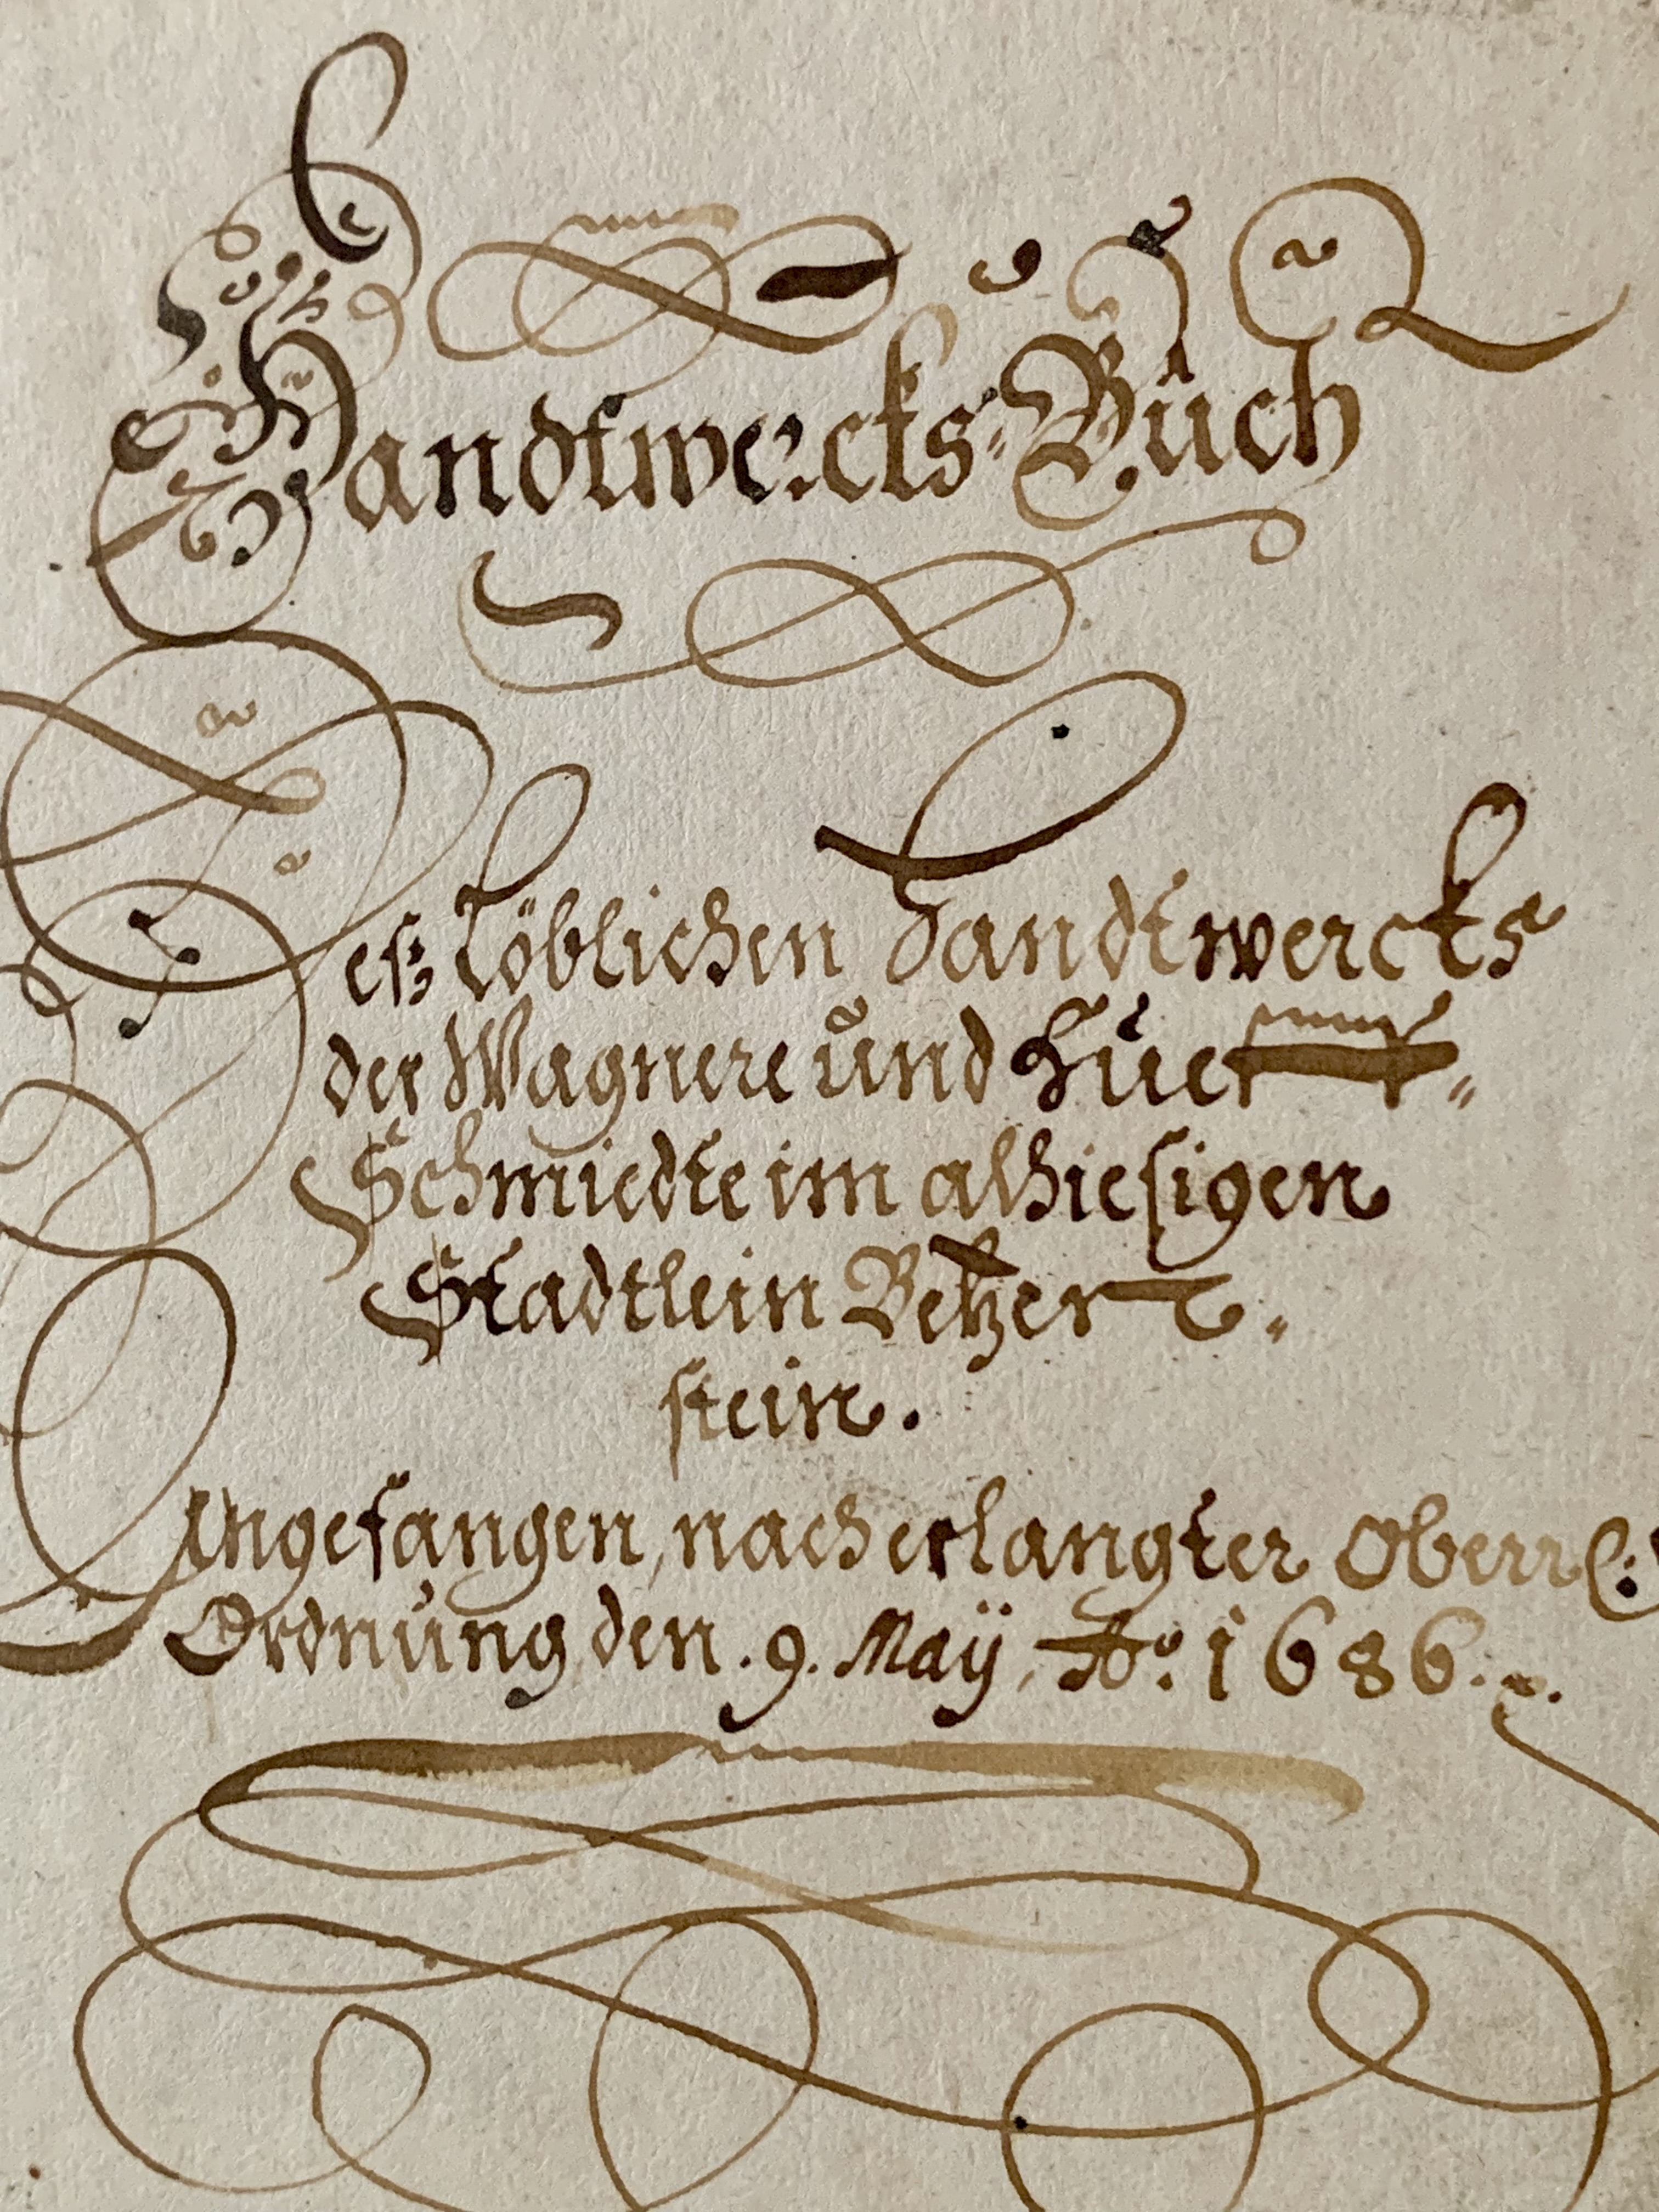 Handtwercks-Buch
Deß Löblichen Handtwercks
der Wagnere und Huef-
Schmiedte im alhiesigen
Stadtlein Betzen-
stein.
Angefangen, nach erlangter Oberr
Ordnung den. 9. Maÿ, Ao. 1686.